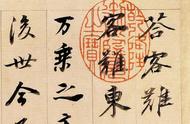 答客難
客難東
万乘之
後世今